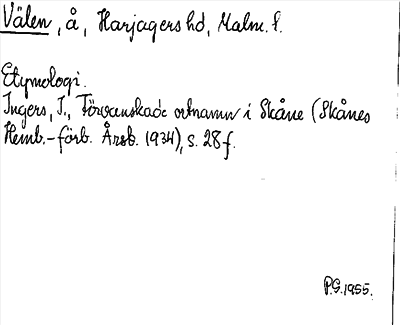 Välen, å, Harjagers hd, Malm. l.
Etymologi.
Ingers, I., Försvenskade ortnamn i Skåne (Skånes
Hemb.-förb. Årsb. 1934), s. 28 f.
P.G. 1955.